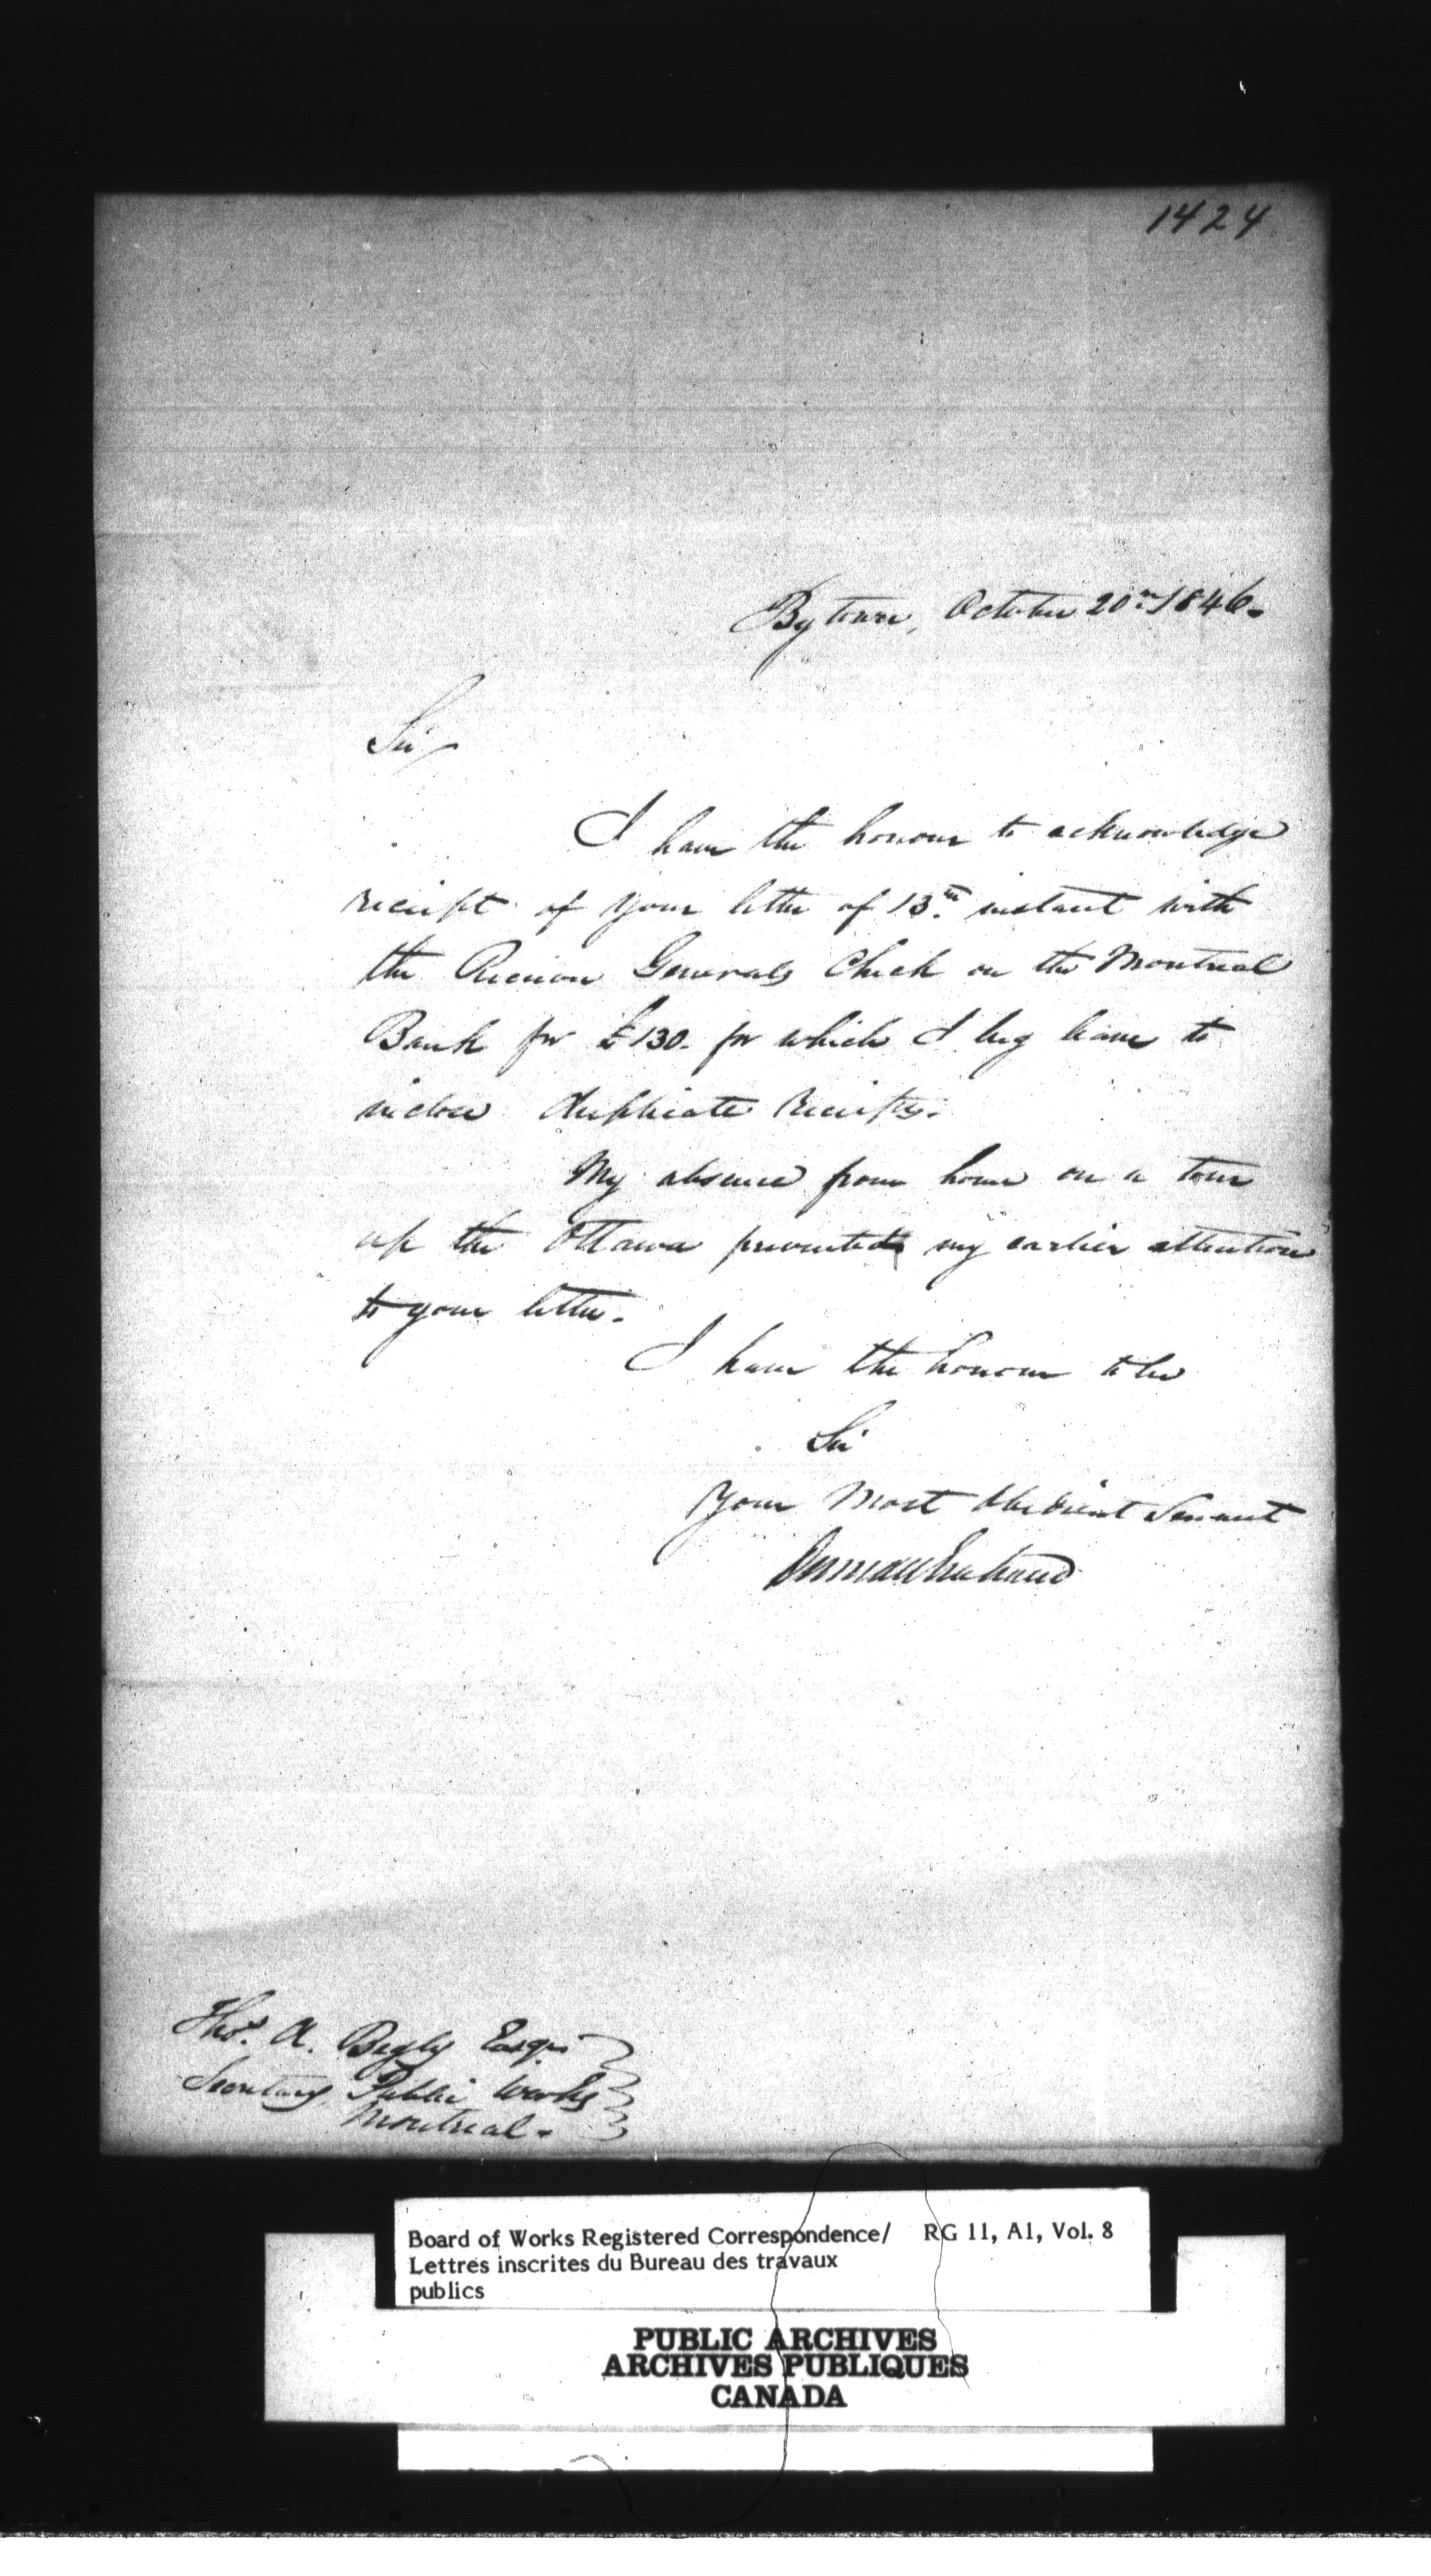 1424
Bytown, October 20th 1846.
Sir,
I have the honour to acknowledge
receipt of your letter of 13th instant with
the Receiver Generals Check on the Montreal
Bank for £130. for which I beg leave to
inclose duplicate receipts.
My absence from home on a tour
up the Ottawa prevented my earlier attention
to your letter.
I have the honour to be
Sir
Your Most Obedient Servant
Thos. A. Begly Esqr.
Secretary Public Works
Montreal.
Board of Works Registered Correspondence/ RG 11, A1, Vol. 8
Lettres inscrites du Bureau des travaux
publics
PUBLIC ARCHIVES
ARCHIVES PUBLIQUES
CANADA